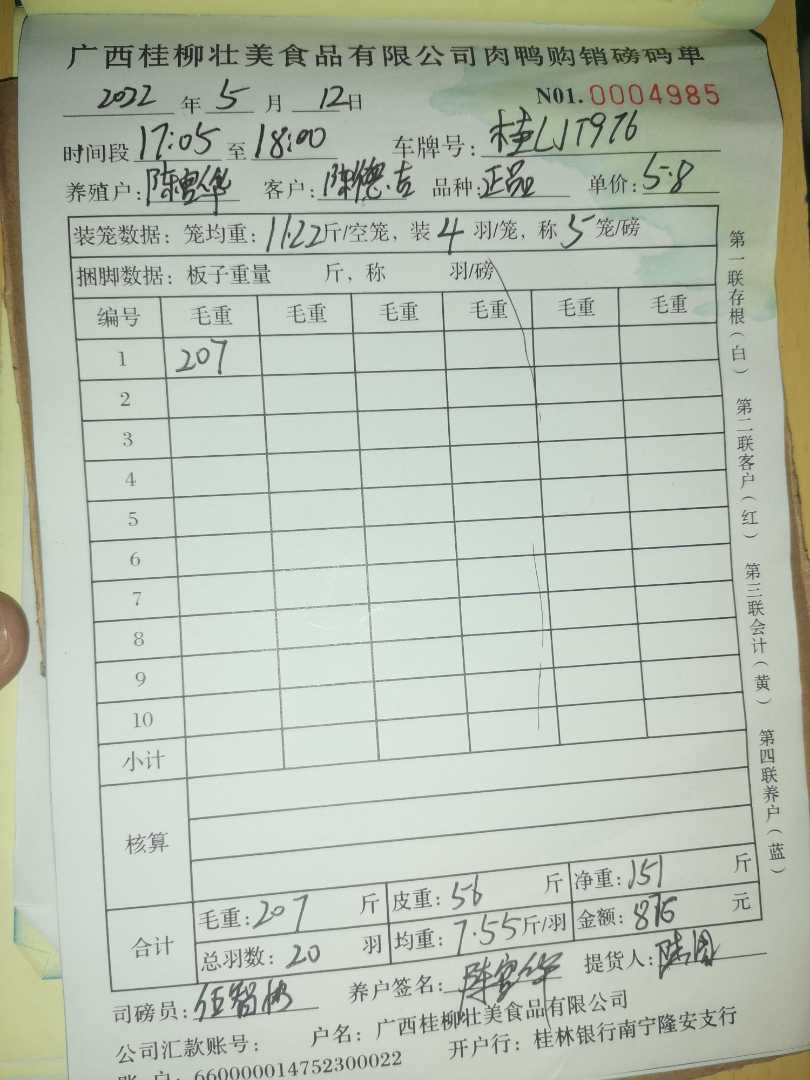 广西桂柳壮美食品有限公司肉鸭购销磅码单
2022 年 5 月 12日 N01. 0004985
时间段 17:05 至 18:00 车牌号: 桂LJT976
养殖户: 陈富华 客户: 陈德吉 品种: 正品 单价: 5.8
装笼数据: 笼均重: 11.22斤/空笼, 装 4 羽/笼, 称 5 笼/磅
捆脚数据: 板子重量 斤, 称 羽/磅
编号 毛重 毛重 毛重 毛重 毛重 毛重
1 207
2
3
4
5
6
7
8
9
10
小计
核算
合计
毛重: 207 斤 皮重: 56 斤 净重: 151 斤
总羽数: 20 羽 均重: 7.55斤/羽 金额: 876 元
司磅员: 伍智彬 养户签名: 陈富华 提货人:
公司汇款账号: 户名: 广西桂柳壮美食品有限公司
账户: 660000014752300022 开户行: 桂林银行南宁隆安支行
第一联存根(白) 第二联客户(红) 第三联会计(黄) 第四联养户(蓝)